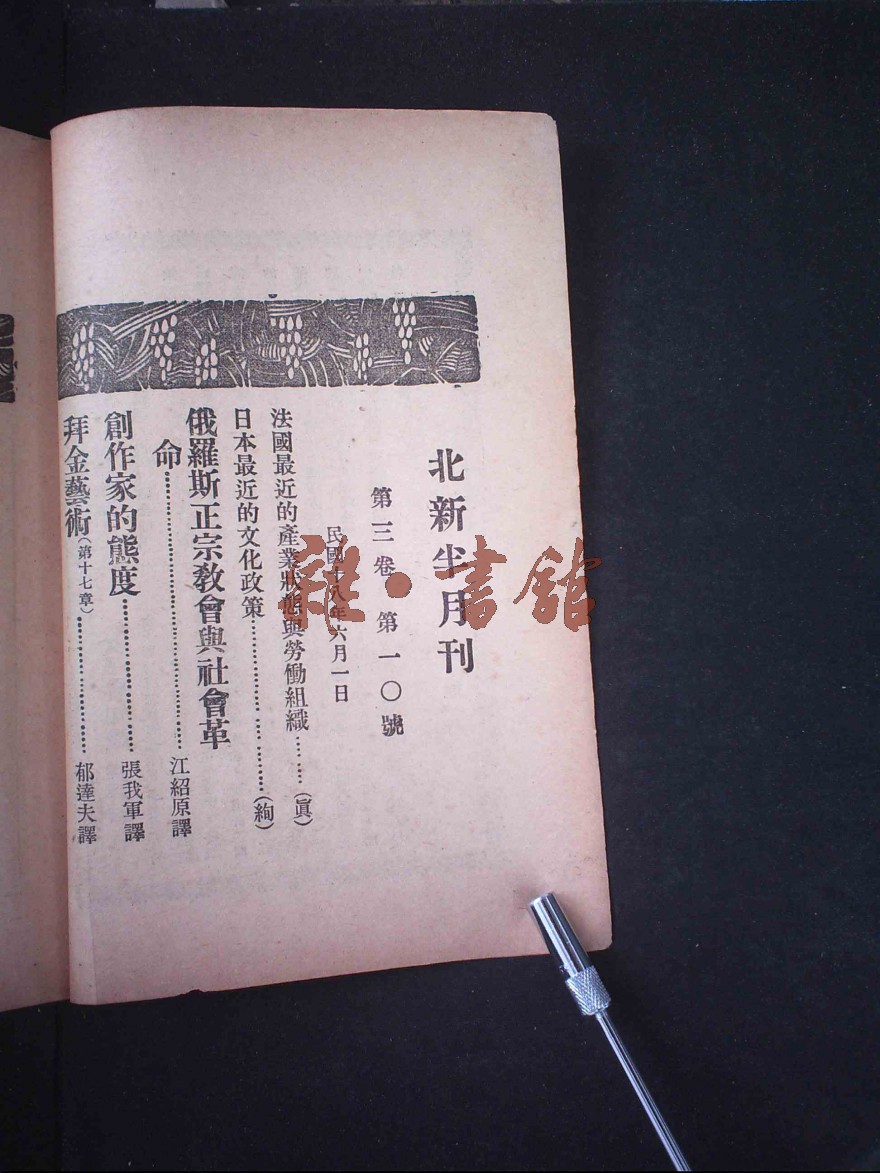 北新半月刊
第三卷 第一〇號
民國十八年六月一日
法國最近的產業狀態與勞働組織………(眞)
日本最近的文化政策………………………(絢)
俄羅斯正宗敎會與社會革
命……………………………………江紹原譯
創作家的態度……………………張我軍譯
拜金藝術(第十七章)…………………郁達夫譯
雜·書館